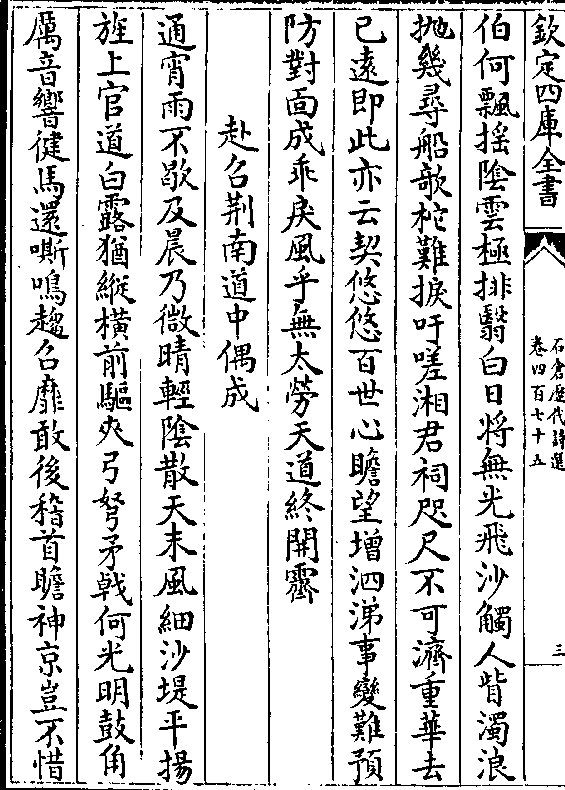 欽定四庫全書
石倉歷代詩選
卷四百七十五
三
伯何飄揺陰雲極排翳白日將無光飛沙觸人眥濁浪
抛幾尋船欹柁難捩吁嗟湘君祠咫尺不可濟重華去
已遠即此亦云契悠悠百世心瞻望增泗涕事變難預
防對面成乖戾風乎無太勞天道終開霽
赴召荆南道中偶成
通宵雨不歇及晨乃微晴輕陰散天末風細沙堤平揚
旌上官道白露猶縱横前驅夾弓弩矛戟何光明鼓角
厲音響徤馬還嘶鳴趨召靡敢後稽首瞻神京豈不惜